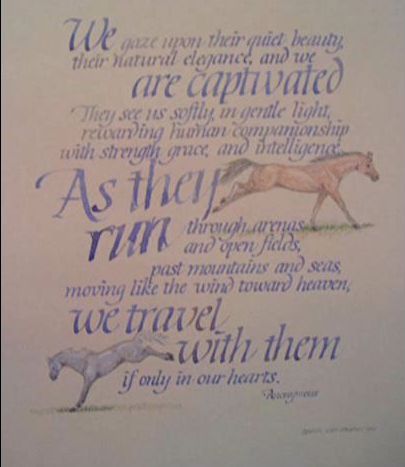 We gaze upon their quiet beauty,
their natural elegance, and we
are captivated
They see us softly, in gentle light,
rewarding human companionship
with strength, grace, and intelligence.
As they
run through arenas
and open fields,
past mountains and seas,
moving like the wind toward heaven,
we travel
with them
if only in our hearts.
Anonymous